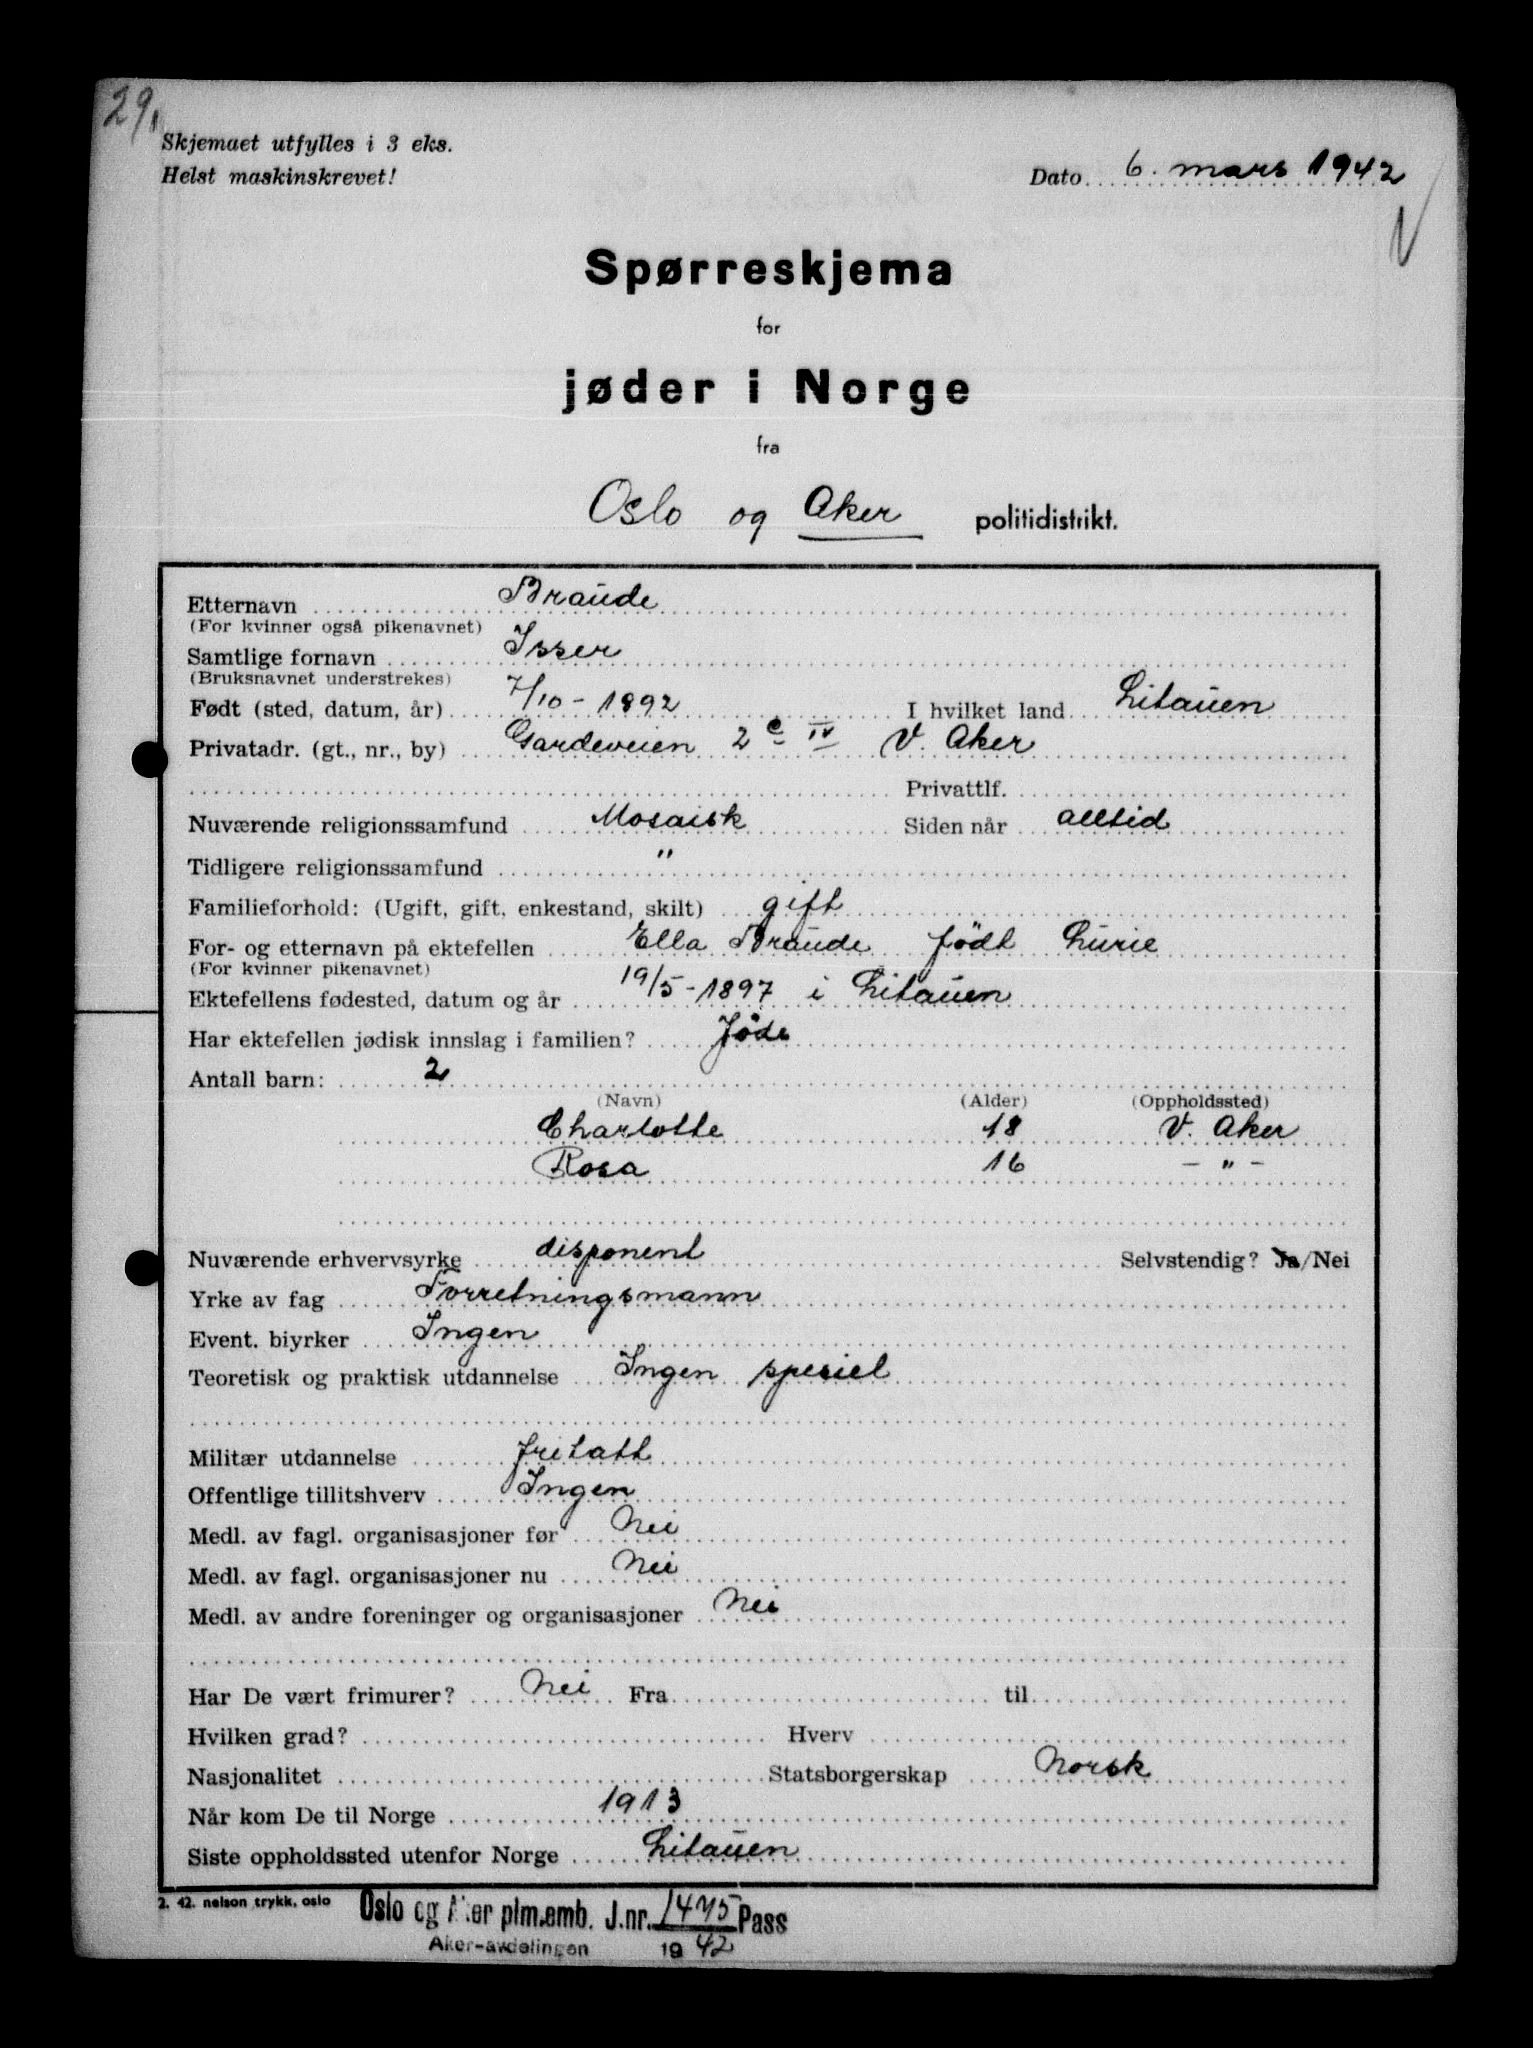 29,
Skjemaet utfylles i 3 eks.
Helst maskinskrevet!
Dato 6. mars 1942
V
Spørreskjema
for
jøder i Norge
fra
Oslo og Aker politidistrikt.
Etternavn Braude
(For kvinner også pikenavnet)
Samtlige fornavn Isser
(Bruksnavnet understrekes)
Født (sted, datum, år) 7/10 - 1892 I hvilket land Litauen
Privatadr. (gt., nr., by) Gardeveien 2 c IV V. Aker
Privattlf.
Nuværende religionssamfund Mosaisk Siden når alltid
Tidligere religionssamfund "
Familieforhold: (Ugift, gift, enkestand, skilt) gift
For- og etternavn på ektefellen Ella Braude født Lurie
(For kvinner pikenavnet)
Ektefellens fødested, datum og år 19/5 - 1897 i Litauen
Har ektefellen jødisk innslag i familien? Jøde
Antall barn: 2
(Navn) (Alder) (Oppholdssted)
Charlotte 18 V. Aker
Rosa 16 - " -
Nuværende erhvervsyrke disponent Selvstendig? Ja/Nei
Yrke av fag Forretningsmann
Event. biyrker Ingen
Teoretisk og praktisk utdannelse Ingen spesiel
Militær utdannelse fritatt
Offentlige tillitshverv Ingen
Medl. av fagl. organisasjoner før Nei
Medl. av fagl. organisasjoner nu Nei
Medl. av andre foreninger og organisasjoner Nei
Har De vært frimurer? Nei Fra til
Hvilken grad? Hverv
Nasjonalitet Statsborgerskap Norsk
Når kom De til Norge 1913
Siste oppholdssted utenfor Norge Litauen
2. 42. nelson trykk. oslo
Oslo og Aker plm.emb. J.nr. 1475 Pass
Aker-avdelingen 1942